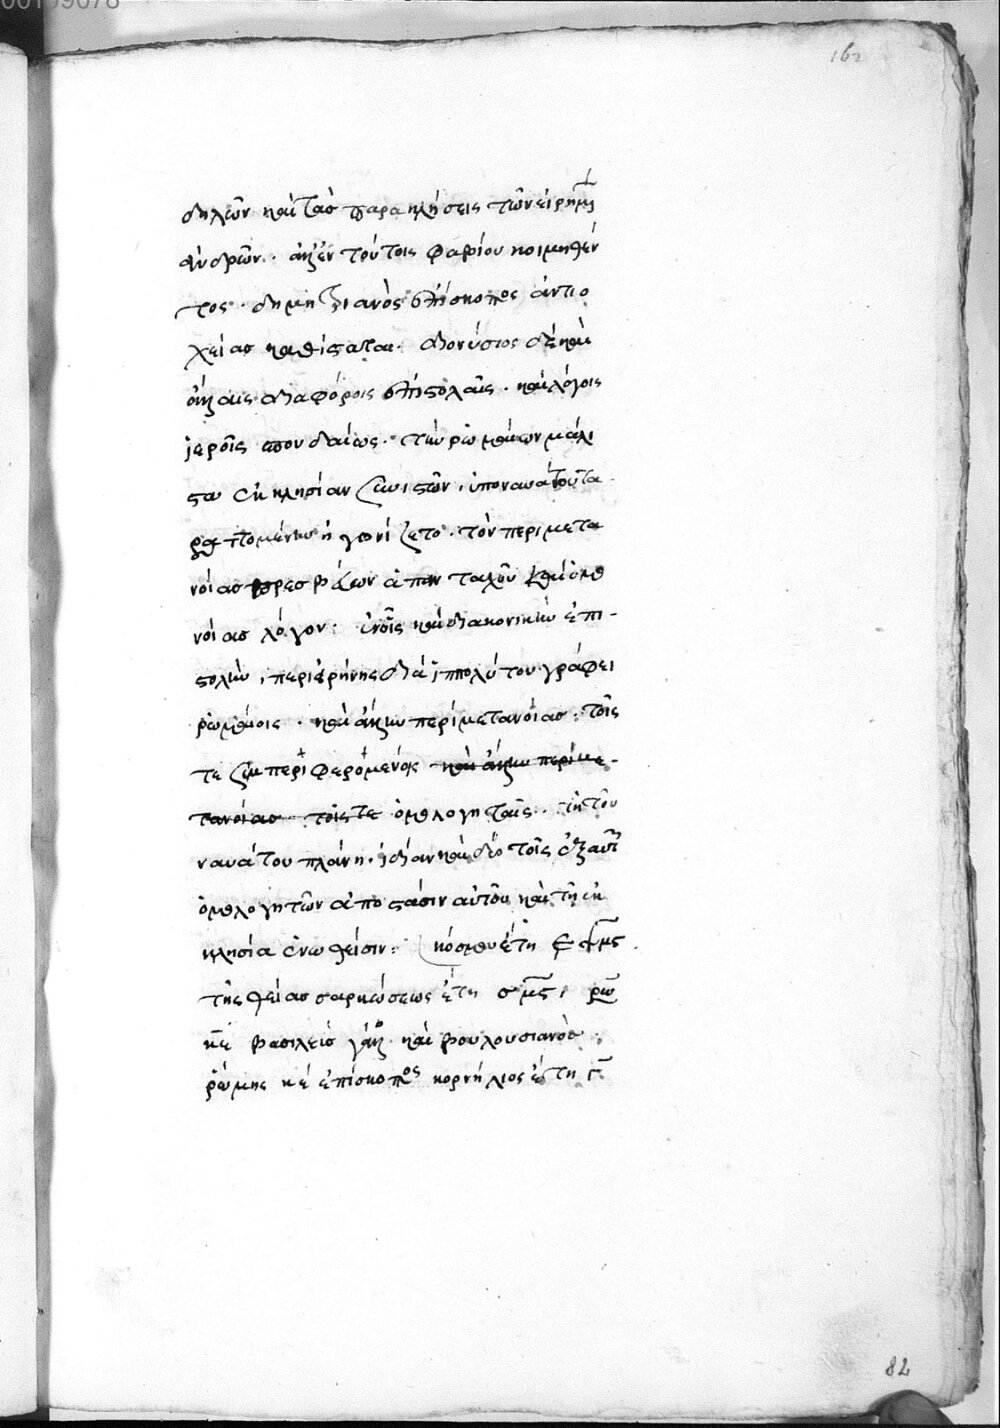 00109078
162
δηλῶν καὶ τὰσ παρακλήσεις τῶν εἰρημ
ἀνδρῶν. ἀλλ' ἐν τούτοις φαβίου κοιμηθέν
τος. δημητριανὸς ἐπίσκοπος ἀντιο
χείασ καθίσταται. διονύσιος δὲ καὶ
ἄλλαις διαφόροις ἐπιστολαῖς. καὶ λόγοις
ἱεροῖς σπουδαίως. τὴν ῥωμαίων μάλι
στα ἐκκλησίαν συνιστῶν, ὑπὸ ναυάτου τα
ραττομένην ἠγωνίζετο. τὸν περὶ μετα
νοίασ πρεσβεύων ἁπανταχοῦ καὶ ὁμο
νοίασ λόγον: ἐν οἷς καὶ διακονικὴν ἐπι-
στολὴν, περὶ εἰρήνης διὰ ἱππολύτου γράφει
ῥωμαίοις. καὶ ἄλλην περὶ μετανοίασ: τοῖς
τε συμπεριφερομένοις καὶ ἄλλην περὶ με-
τανοίασ τοῖς τε ὁμολογηταῖς. τῆ τοῦ
ναυάτου πλάνη. ἰδίαν καὶ δύο τοῖς ἐξ αὐτ
ὁμολογητῶν ἀποστᾶσιν αὐτοῦ καὶ τῆ ἐκ
κλησία ἑνωθεῖσιν: κόσμου ἔτη
τῆς θείασ σαρκώσεως ἔτη σμς, ῥω
κε βασιλεὺσ γάλλ καὶ βουλουσιανὸσ
ῥώμης κε ἐπίσκοπος κορνήλιος ἔτη γ
82